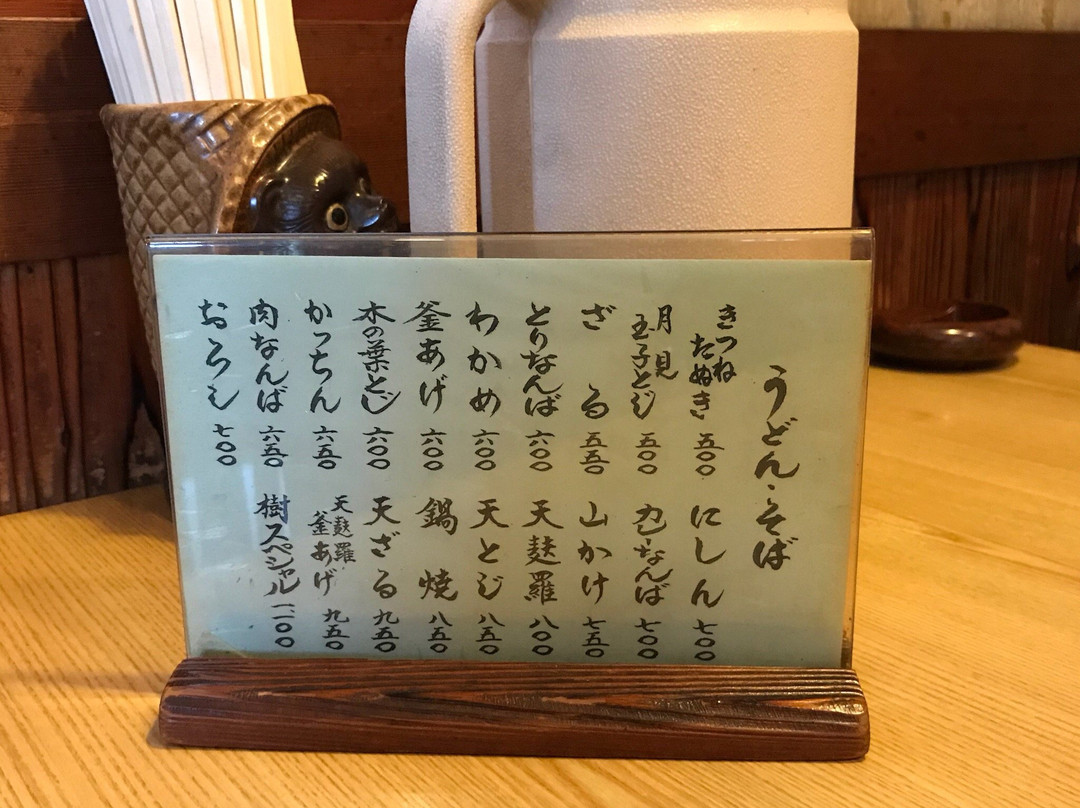 うどん・そば
きつね
たぬき 五〇〇
月見
玉子とじ 五〇〇
ざる 五五〇
とりなんば 六〇〇
わかめ 六〇〇
釜あげ 六〇〇
木の葉とじ 六〇〇
かっちん 六五〇
肉なんば 六五〇
おろし 七〇〇
にしん 七〇〇
カレーなんば 七〇〇
山かけ 七五〇
天麩羅 八〇〇
天とじ 八五〇
鍋焼 八五〇
天ざる 九五〇
天麩羅
釜あげ 九五〇
樹スペシャル 一、一〇〇